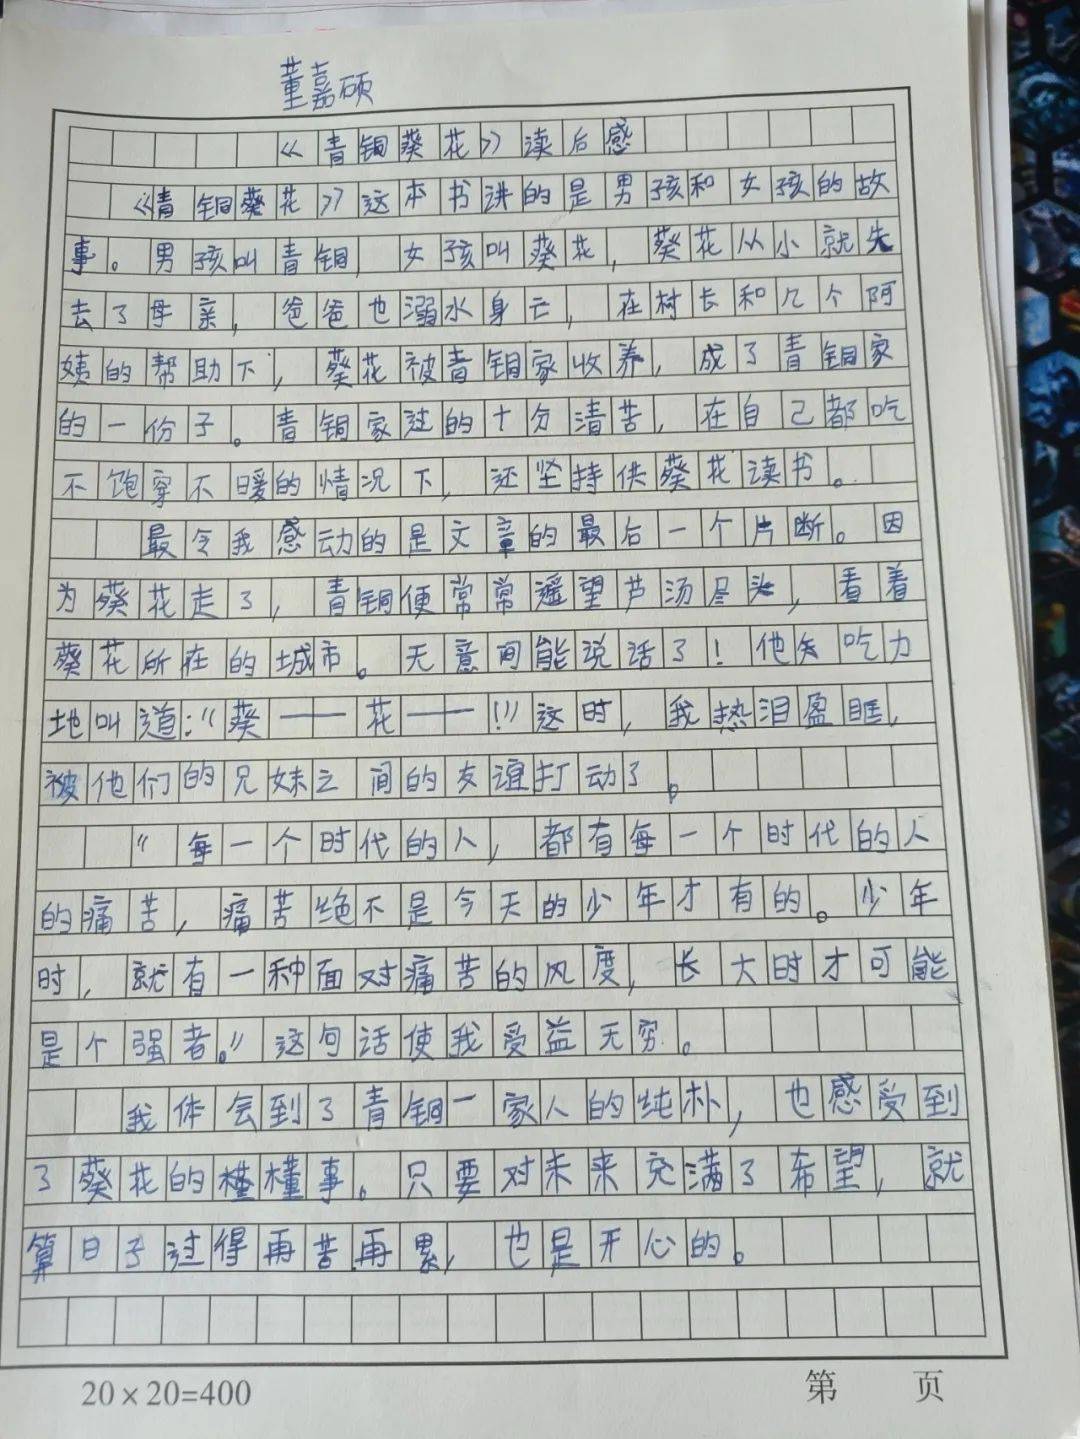 董嘉硕
《青铜葵花》读后感
《青铜葵花》这本书讲的是男孩和女孩的故
事。男孩叫青铜,女孩叫葵花,葵花从小就失
去了母亲,爸爸也溺水身亡,在村长和几个阿
姨的帮助下,葵花被青铜家收养,成了青铜家
的一份子。青铜家过的十分清苦,在自己都吃
不饱穿不暖的情况下,还坚持供葵花读书。
最令我感动的是文章的最后一个片断。因
为葵花走了,青铜便常常遥望芦汤尽头,看着
葵花所在的城市。无意间能说话了!他矢吃力
地叫道:“葵——花——!”这时,我热泪盈眶,
被他们的兄妹之间的友谊打动了。
“每一个时代的人,都有每一个时代的人
的痛苦,痛苦绝不是今天的少年才有的。少年
时,就有一种面对痛苦的风度,长大时才可能
是个强者。”这句话使我受益无穷。
我体会到了青铜一家人的纯朴,也感受到
了葵花的懂事。只要对未来充满了希望,就
算日子过得再苦再累,也是开心的。
20×20=400
第 页